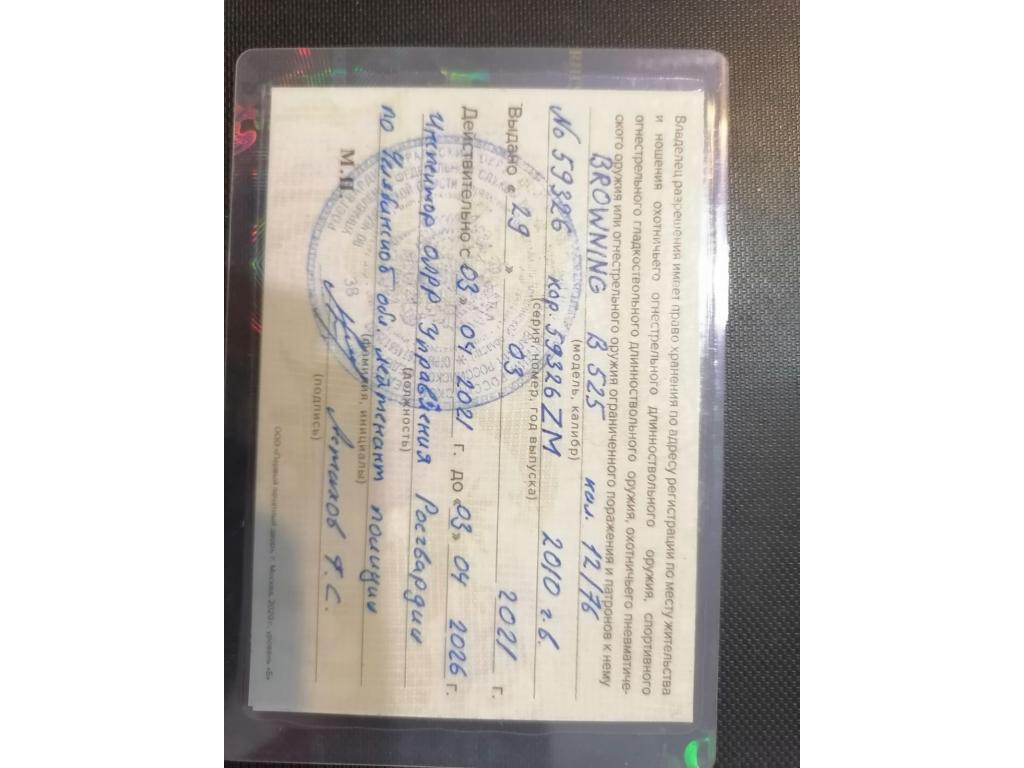 Владелец разрешения имеет право хранения по адресу регистрации по месту жительства
и ношения охотничьего огнестрельного длинноствольного оружия, спортивного
огнестрельного гладкоствольного длинноствольного оружия, охотничьего пневматиче-
ского оружия или огнестрельного оружия ограниченного поражения и патронов к нему
BROWNING B 525 кал. 12/76
(модель, калибр)
№ 59326 кор. 59326ZM 2010 г.в.
(серия, номер, год выпуска)
Выдано « 29 » 03 2021 г.
Действительно с «03» 04 2021 г. до «03» 04 2026 г.
Инспектор ОЛРР Управления Росгвардии
(должность)
по Челябинской обл. лейтенант полиции
(фамилия, инициалы)
М.П.
38
(подпись)
ООО «Первый печатный двор», г. Москва, 2020 г., уровень «Б»